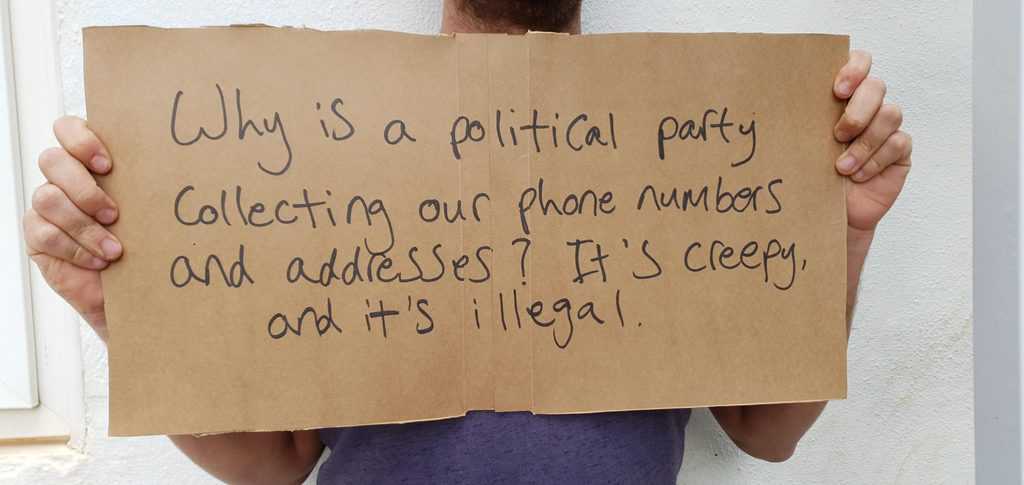 Why is a political party
Collecting our phone numbers
and addresses? It's creepy,
and it's illegal.